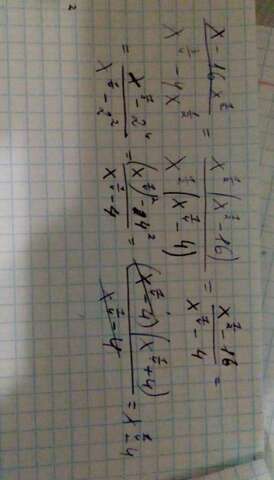 (x - 16x^{1/2})/(x^{3/4} - 4x^{1/2}) = (x^{1/2}(x^{1/2} - 16))/(x^{1/2}(x^{1/4} - 4)) = (x^{1/2} - 16)/(x^{1/4} - 4) =
= (x^{1/2} - 2^4)/(x^{1/4} - 2^2) = ((x^{1/4})^2 - 4^2)/(x^{1/4} - 4) = ((x^{1/4} - 4)(x^{1/4} + 4))/(x^{1/4} - 4) = x^{1/4} + 4
2